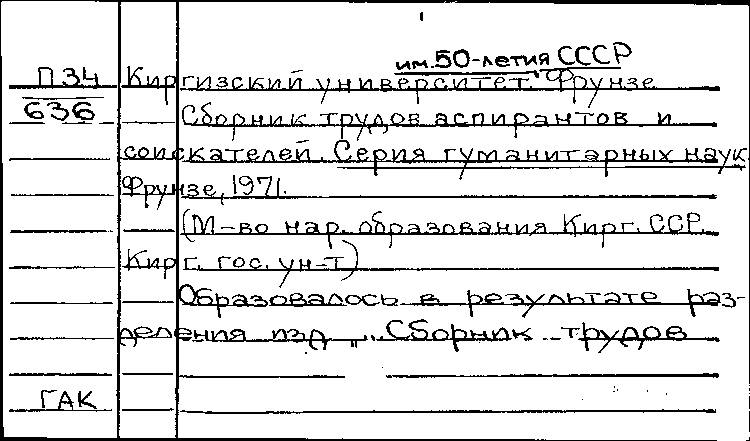 им. 50-летия СССР
П34 Киргизский университет. Фрунзе
636 Сборник трудов аспирантов и
соискателей. Серия гуманитарных наук
Фрунзе, 1971.
(М-во нар. образования Кирг. ССР.
Кирг. гос. ун-т)
Образовалось в результате раз-
деления изд. „Сборник трудов
ГАК